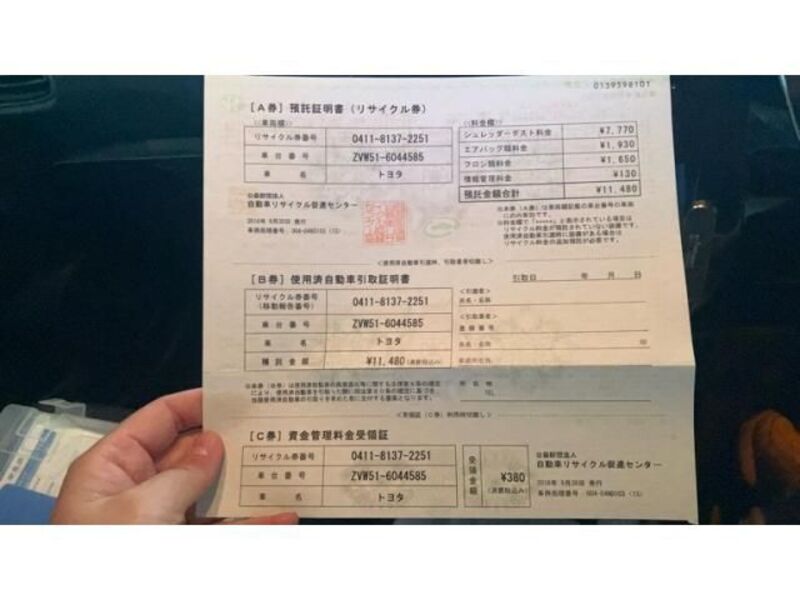 0139598101
[A券] 預託証明書 (リサイクル券)
<車両欄>
リサイクル券番号 0411-8137-2251
車台番号 ZVW51-6044585
車名 トヨタ
<料金欄>
シュレッダーダスト料金 ¥7,770
エアバッグ類料金 ¥1,930
フロン類料金 ¥1,650
情報管理料金 ¥130
預託金額合計 ¥11,480
公益財団法人
自動車リサイクル促進センター
発行
<使用済自動車引渡時、引取業者切離し>
[B券] 使用済自動車引取証明書
引取日 年 月 日
リサイクル券番号
(移動報告番号) 0411-8137-2251
車台番号 ZVW51-6044585
車名 トヨタ
預託金額 ¥11,480 (消費税込み)
<引渡者>
氏名・名称
<引取業者>
登録番号
氏名・名称 印
TEL
[C券] 資金管理料金受領証
リサイクル券番号 0411-8137-2251
車台番号 ZVW51-6044585
車名 トヨタ
受領金額 ¥380
(消費税込み)
公益財団法人
自動車リサイクル促進センター
発行